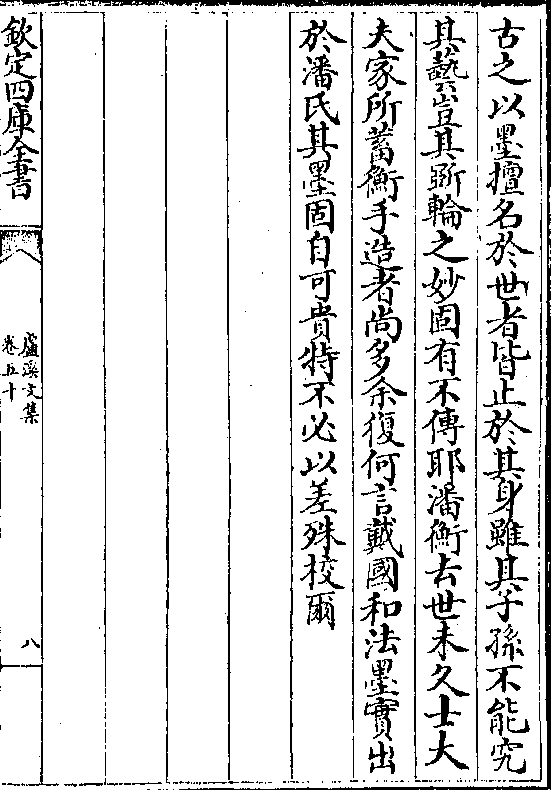 古之以墨擅名於世者皆止於其身雖其子孫不能究
其藝豈其斵輪之妙固有不傳耶潘衡去世未久士大
夫家所蓄衡手造者尚多余復何言戴國和法墨實出
於潘氏其墨固自可貴特不必以差殊校爾
欽定四庫全書
盧溪文集
卷五十
八